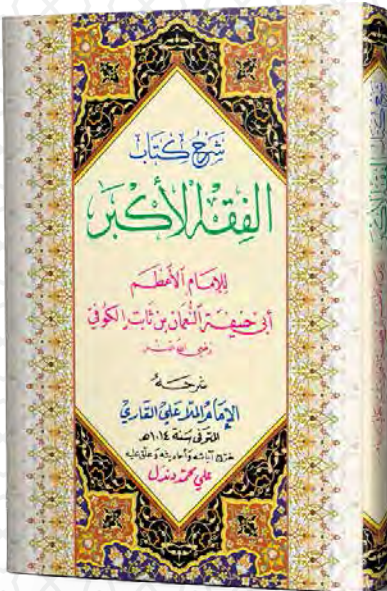 شَرْحُ كِتَابِ
الفِقْهِ الأَكْبَر
لِلإِمَامِ الأَعْظَمِ
أَبِي حَنِيفَةَ النُّعْمَانِ بْنِ ثَابِتٍ الكُوفِيّ
رضي الله عنه
شرحه
الإِمَامُ المُلَّا عَلِيّ القَارِي
المتوفى سنة ١٠١٤هـ
خرّج آياته وأحاديثه وعلّق عليه
علي محمد دندل
شرح كتاب الفقه الأكبر